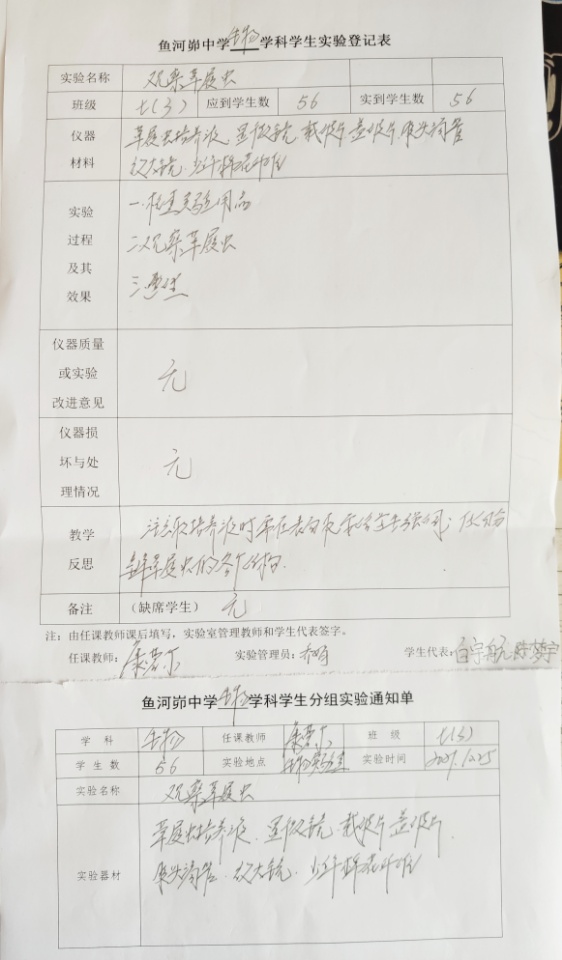 鱼河峁中学生物学科学生实验登记表
实验名称 观察草履虫
班级 七(3) 应到学生数 56 实到学生数 56
仪器材料 草履虫培养液 显微镜 载玻片 盖玻片 胶头滴管
放大镜 少许棉花纤维
实验过程及其效果 一.检查实验用品
二.观察草履虫
三.
仪器质量或实验改进意见 无
仪器损坏与处理情况 无
教学反思 注意取培养液时
草履虫的各个结构.
备注 (缺席学生) 无
注:由任课教师课后填写,实验室管理教师和学生代表签字。
任课教师: 实验管理员: 学生代表:
鱼河峁中学生物学科学生分组实验通知单
学科 生物 任课教师 班级 七(3)
学生数 56 实验地点 生物实验室 实验时间
实验名称 观察草履虫
实验器材 草履虫培养液.显微镜.载玻片 盖玻片.
胶头滴管.放大镜.少许棉花纤维